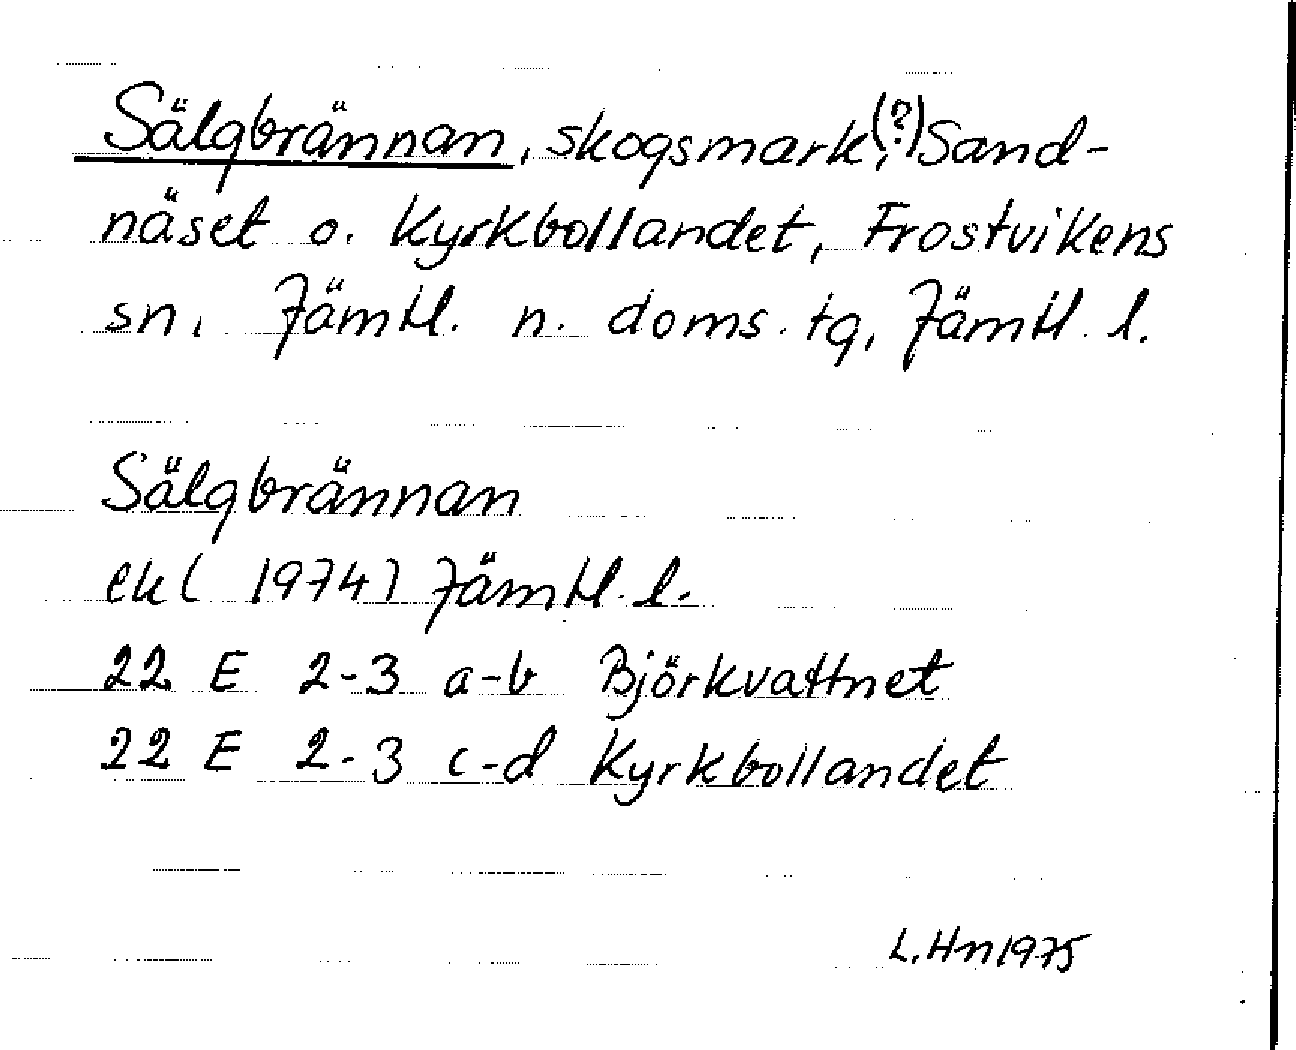 Sälgbrännan, skogsmark(?), Sand-
näset o. Kyrkbollandet, Frostvikens
sn, Jämtl. n. doms. tg, Jämtl. l.
Sälgbrännan
ek ( 1974 ) Jämtl. l.
22 E 2-3 a-b Björkvattnet
22 E 2-3 c-d Kyrkbollandet
L. Hn 1975